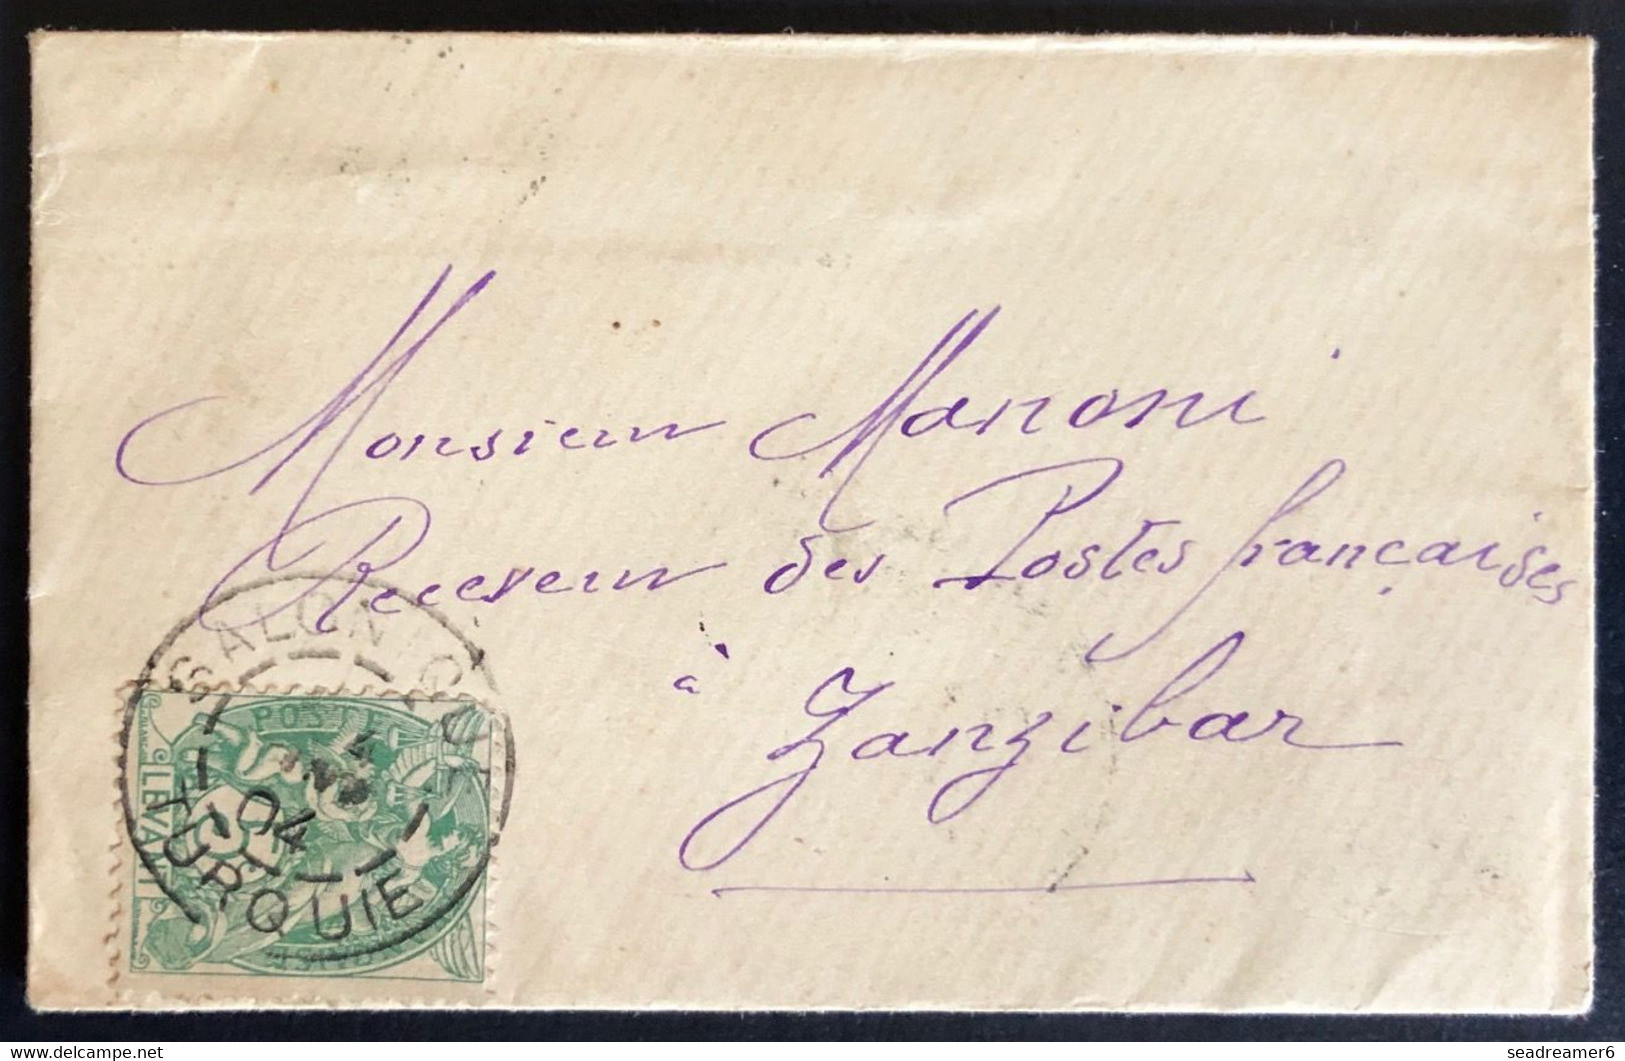 Monsieur Manoni
Receveur des Postes françaises
à
Zanzibar
SALONIQUE
4
04
TURQUIE
POSTE
LEVANT
5
delcampe.net
seadreamer6